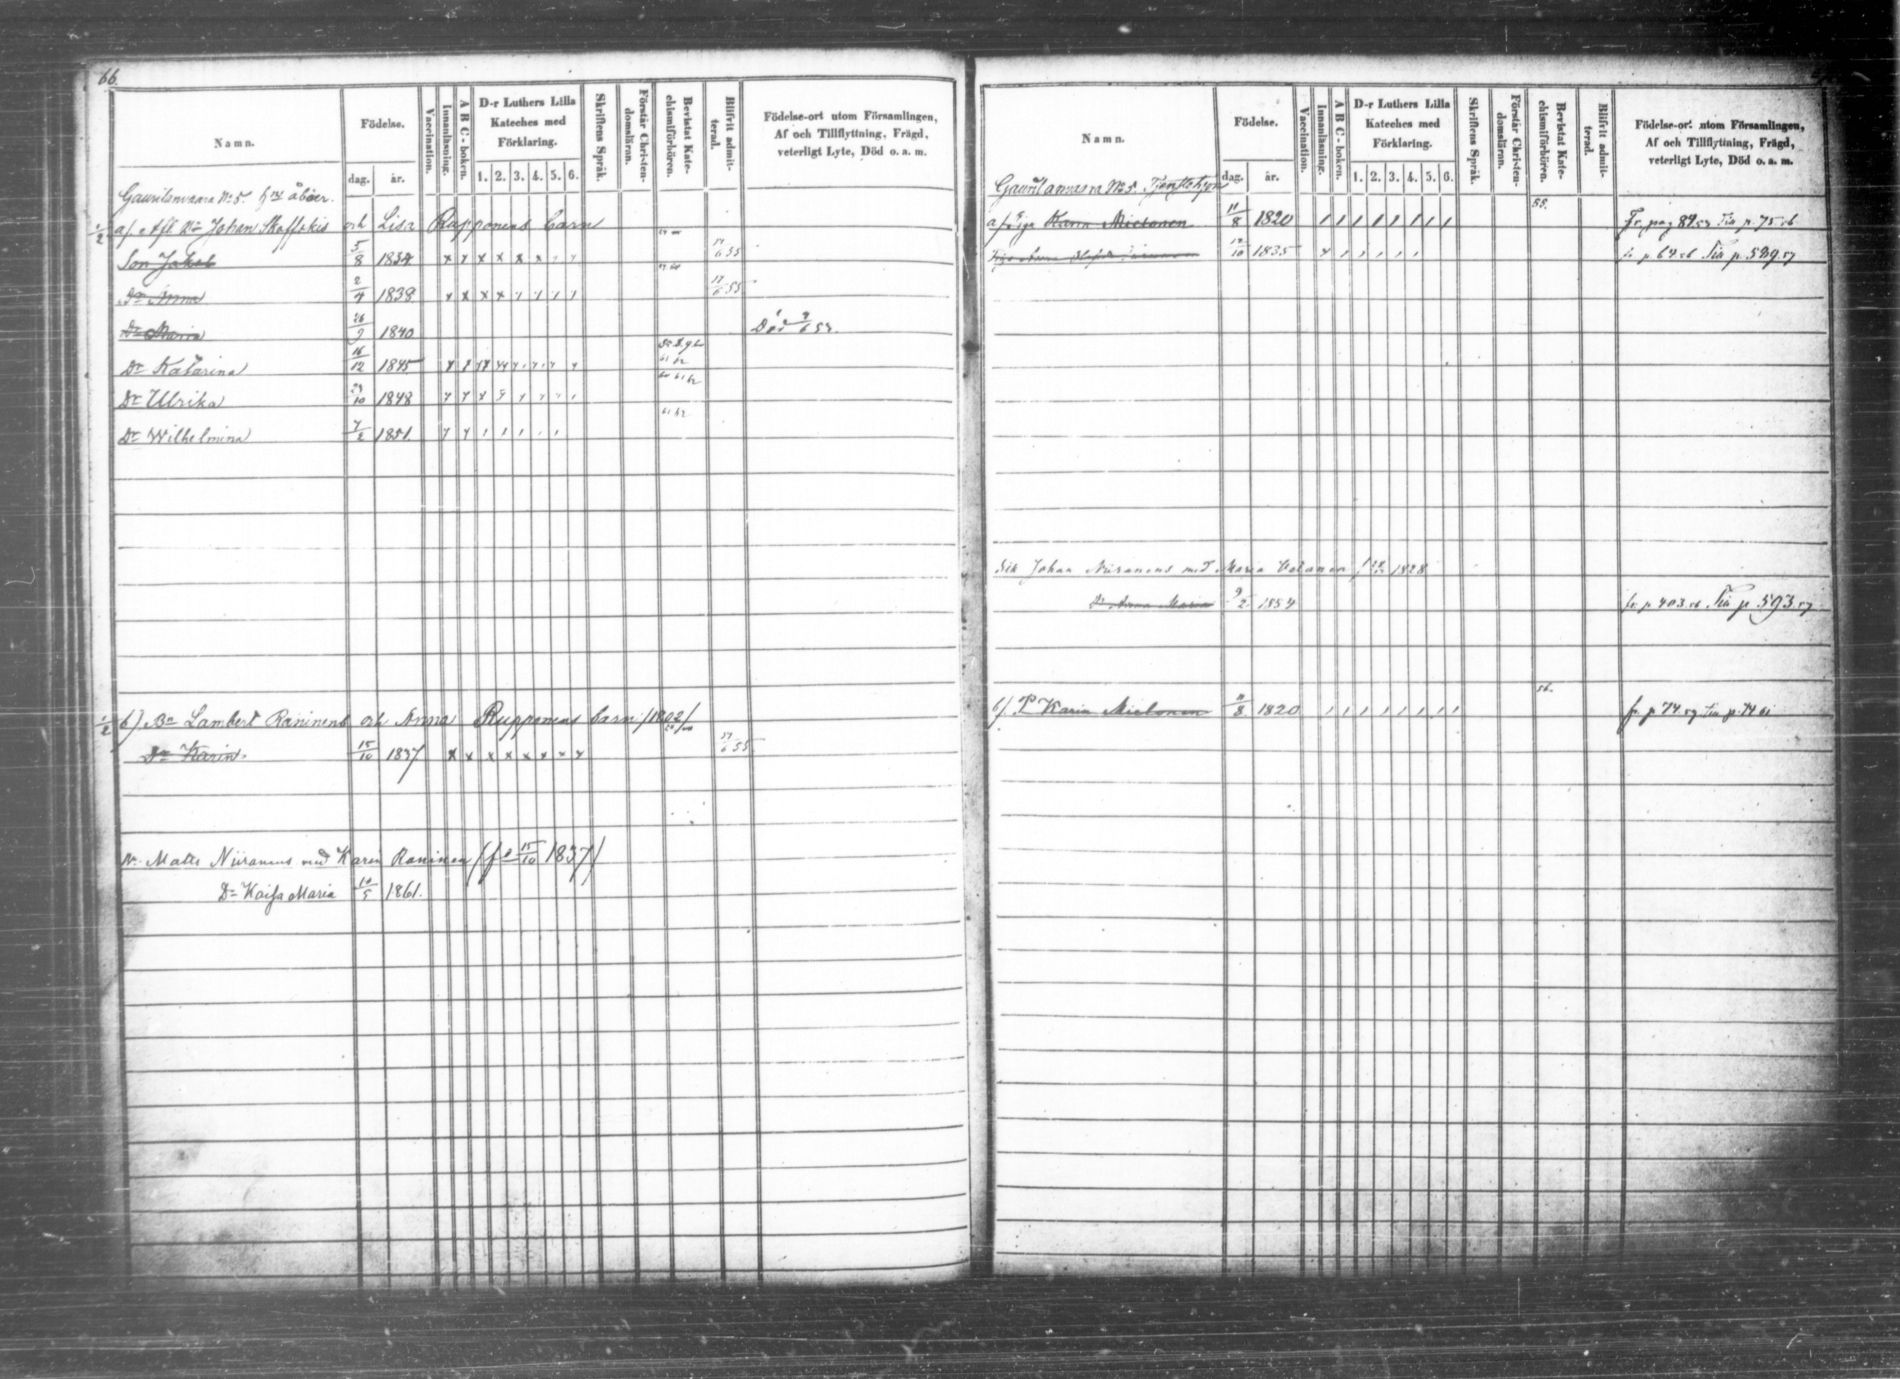 66
Namn.
Födelse.
dag.
år.
Vaccination.
Innanläsning.
A B C-boken.
D-r Luthers Lilla
Kateches med
Förklaring.
1. 2. 3. 4. 5. 6.
Skriftens Språk.
Förstår Christen-
domsläran.
Bevistat Kate-
chismiförhören.
Blifvit admit-
terad.
Födelse-ort utom Församlingen,
Af och Tillflyttning, Frägd,
veterligt Lyte, Död o. a. m.
Gauritsnvaara No 5.
a/. Afl. Bn Johan Skoffskis och Lisa Rupponens barn
Son Jakob 5/8 1834 17/6 55
Dr Anna 2/4 1838 17/6 55
Dr Maria 26/9 1840 Död
Dr Katarina 16/12 1845 61 62
Dr Ulrika 29/10 1848 60 61 62
Dr Wilhelmina 7/2 1851. 61 62
1/2 b) Bn Lambert Räninens och Anna Rupponens barn /1802/
Dr Karin 15/10 1837 17/6 55
Matts Niiranens med Karin Raninen (f. 15/10 1837)
Dr Kaisa Maria 1861.
Namn.
Födelse.
dag.
år.
Vaccination.
Innanläsning.
A B C-boken.
D-r Luthers Lilla
Kateches med
Förklaring.
1. 2. 3. 4. 5. 6.
Skriftens Språk.
Förstår Christen-
domsläran.
Bevistat Kate-
chismiförhören.
Blifvit admit-
terad.
Födelse-ort utom Församlingen,
Af och Tillflyttning, Frägd,
veterligt Lyte, Död o. a. m.
No 5.
a/ Piga Karin Mietonen 11/8 1820 55. Fr. pag 84 Till p. 75
1835 fr. p. 64 Till p. 539
Johan Niiranens med Maria 1828
Dr Anna Maria 9/2 1854 fr. p 403 Till p 593
b/. P. Karin Mietonen 11/8 1820 56. fr. p 74 Till p. 74 61